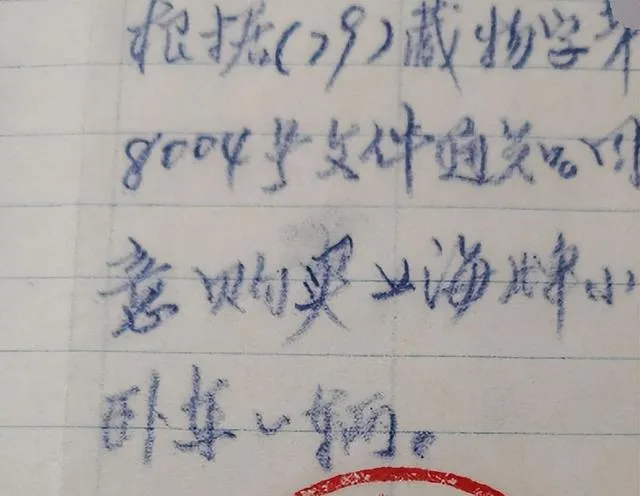 根据(79)藏物字第
8004号文件通知。同
意购买上海牌小
卧车一辆。